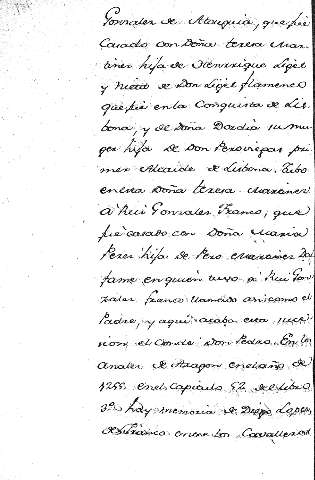 Gonzalez de Atouguia, que fué
Casado con Doña teresa Mar-
tinez hija de Henrrique Liget
y Nieto de Don Liget flamenco
que fué en la Conquista de Lis-
bona, y de Doña Dordia su mu-
ger hija de Don Peroviegas pri-
mer Alcaide de Lisbona. Tubo
en esta Doña teresa Martinez
á Rui Gonzalez Franco, que
fué casado con Doña Maria
Perez hija de Pero Martinez Bo
fame en quien uvo á Rui Gon-
zalez franco llamado asi como el
Padre, y aqui acaba esta suce-
sion el Conde Don Pedro. En los
Anales de Aragon en el año de
1255 en el Capitulo 52 de el Libro
3º hay memoria de Diego Lopez
en tre los Cavalleros